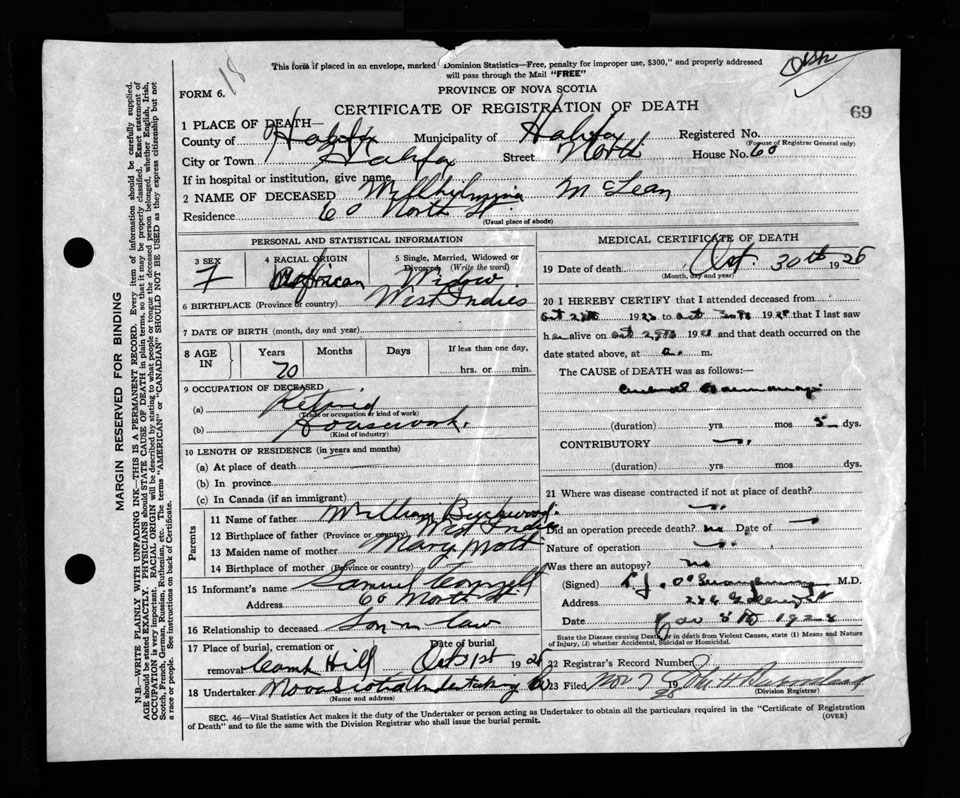 18
This form if placed in an envelope, marked "Dominion Statistics—Free, penalty for improper use, $300," and properly addressed
will pass through the Mail "FREE"
FORM 6.
PROVINCE OF NOVA SCOTIA
CERTIFICATE OF REGISTRATION OF DEATH
69
1 PLACE OF DEATH—
County of Halifax Municipality of Halifax Registered No.
(For use of Registrar General only)
City or Town Halifax Street North House No. 60
If in hospital or institution, give name
2 NAME OF DECEASED McLean
Residence 60 North St.
(Usual place of abode)
PERSONAL AND STATISTICAL INFORMATION
3 SEX 4 RACIAL ORIGIN 5 Single, Married, Widowed or Divorced (Write the word)
F African Widow
6 BIRTHPLACE (Province or country) West Indies
7 DATE OF BIRTH (month, day and year)
8 AGE IN Years Months Days If less than one day,
70 hrs. or min.
9 OCCUPATION OF DECEASED
(a) Retired
(Trade or occupation or kind of work)
(b) Housework.
(Kind of industry)
10 LENGTH OF RESIDENCE (in years and months)
(a) At place of death
(b) In province
(c) In Canada (if an immigrant)
Parents
11 Name of father William
12 Birthplace of father (Province or country) West Indies
13 Maiden name of mother Mary
14 Birthplace of mother (Province or country)
15 Informant's name Samuel
Address 60 North St.
16 Relationship to deceased Son in law
17 Place of burial, cremation or Date of burial
removal Camp Hill Oct 31st 1928
18 Undertaker Nova Scotia Undertaking Co
(Name and address)
MEDICAL CERTIFICATE OF DEATH
19 Date of death Oct. 30th 1928
(Month, day and year)
20 I HEREBY CERTIFY that I attended deceased from
Oct 192 to Oct 30th 1928 that I last saw
h alive on Oct 192 and that death occurred on the
date stated above, at m.
The CAUSE OF DEATH was as follows:—
Cerebral Haemorrhage
(duration) yrs mos 5 dys.
CONTRIBUTORY
(duration) yrs mos dys.
21 Where was disease contracted if not at place of death?
Did an operation precede death? no Date of
Nature of operation
Was there an autopsy? no
(Signed) M.D.
Address
Date Nov 1928
State the Disease causing Death, or in death from Violent Causes, state (1) Means and Nature
of Injury, (2) whether Accidental, Suicidal or Homicidal.
22 Registrar's Record Number
23 Filed Nov 7 1928 John H
(Division Registrar)
SEC. 46—Vital Statistics Act makes it the duty of the Undertaker or person acting as Undertaker to obtain all the particulars required in the "Certificate of Registration
of Death" and to file the same with the Division Registrar who shall issue the burial permit.
(OVER)
MARGIN RESERVED FOR BINDING
N.B.—WRITE PLAINLY WITH UNFADING INK—THIS IS A PERMANENT RECORD. Every item of information should be carefully supplied.
AGE should be stated EXACTLY. PHYSICIANS should STATE CAUSE OF DEATH in plain terms, so that it may be properly classified. Exact statement of
OCCUPATION is very important. RACIAL ORIGIN will be described by stating to what people or tongue the deceased person belonged, whether English, Irish,
Scotch, French, German, Russian, Ruthenian, etc. The terms "AMERICAN" or "CANADIAN" SHOULD NOT BE USED as they express citizenship but not
a race or people. See instructions on back of Certificate.